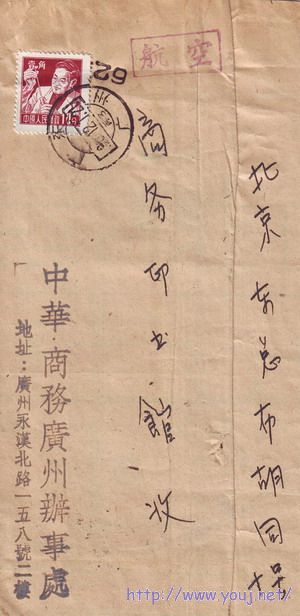 航空
北京东总布胡同10号
商务印书馆收
中華·商務廣州辦事處
地址：廣州永漢北路一五八號二樓
壹角
中國人民郵政
62.
州
http://www.youj.net/